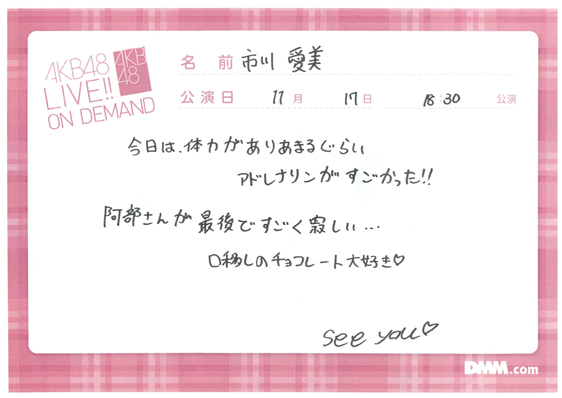 AKB48
LIVE!!
ON DEMAND
AKB
48
名前 市川 愛美
公演日 11月 17日 18:30 公演
今日は、体力がありあまるぐらい
アドレナリンがすごかった!!
阿部さんが最後ですごく寂しい…
口移しのチョコレート大好き♡
see you♡
DMM.com